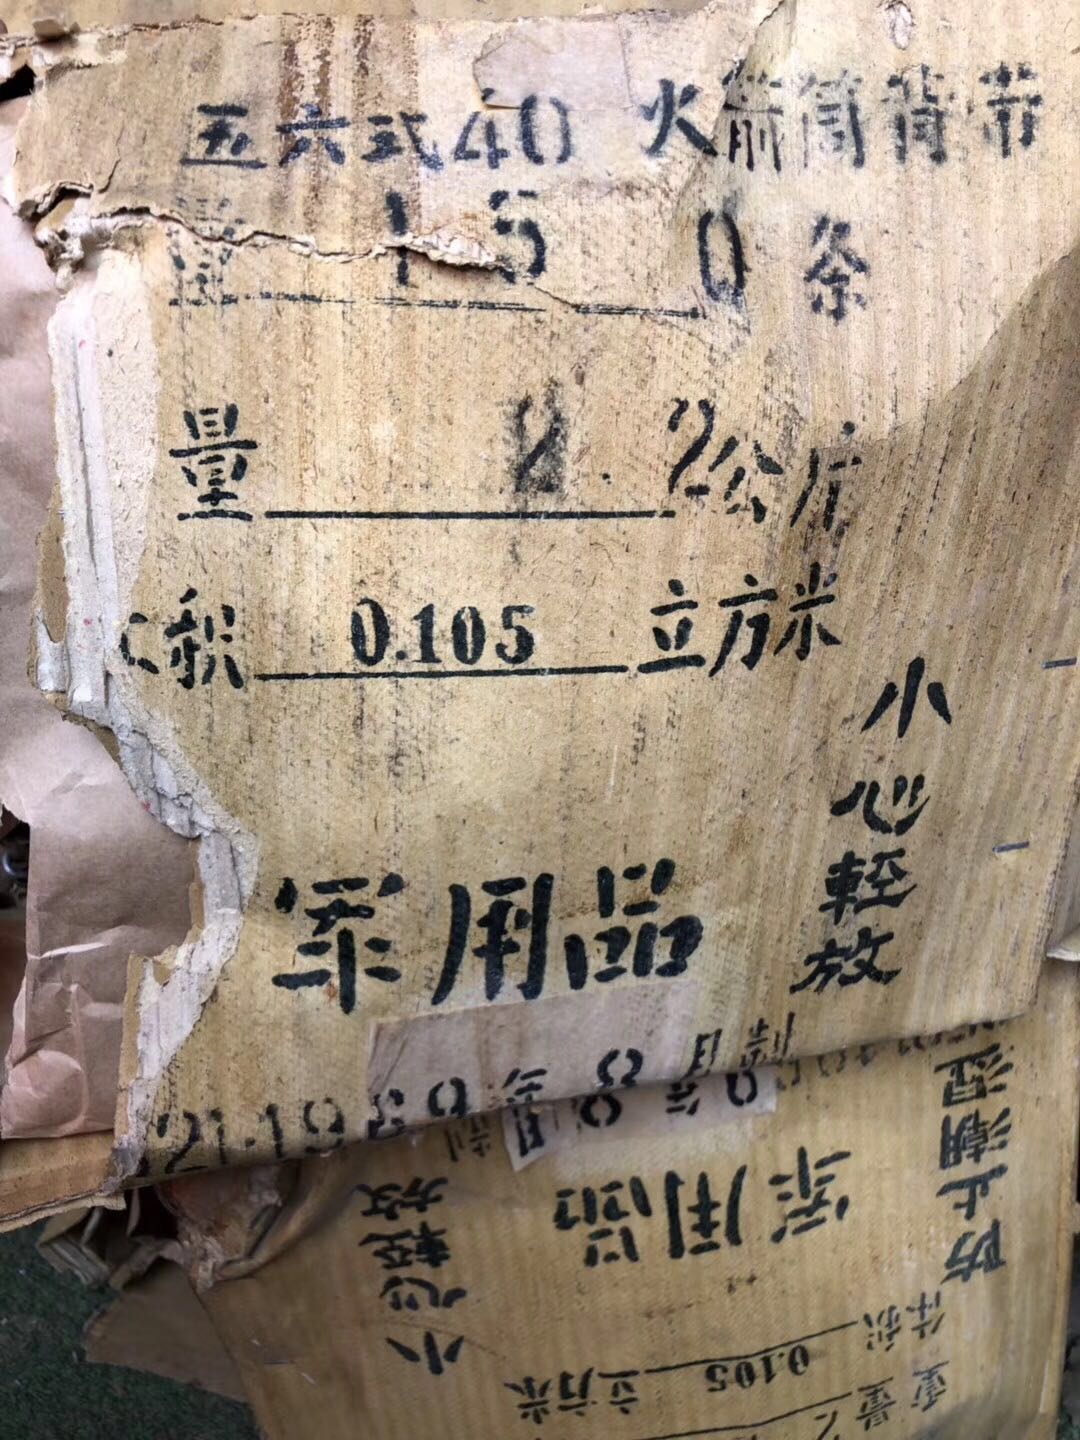 五六式40火箭筒背带
量 150条
量 2.2公斤
积 0.105 立方米
小心轻放
军用品
年 8月制
军用品
小心轻放
防止潮湿
体积 0.105 立方米
重量